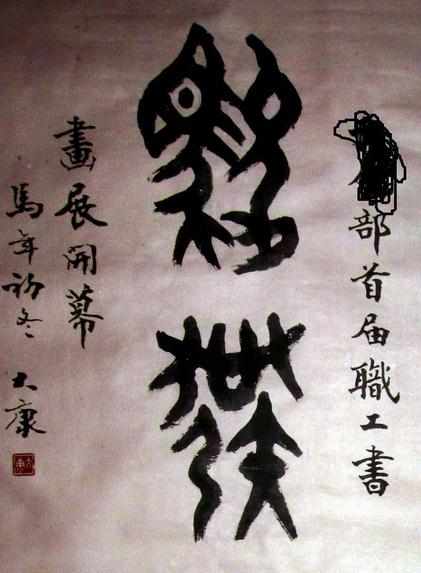 部首届職工書
畫展開幕
馬年初冬 大康